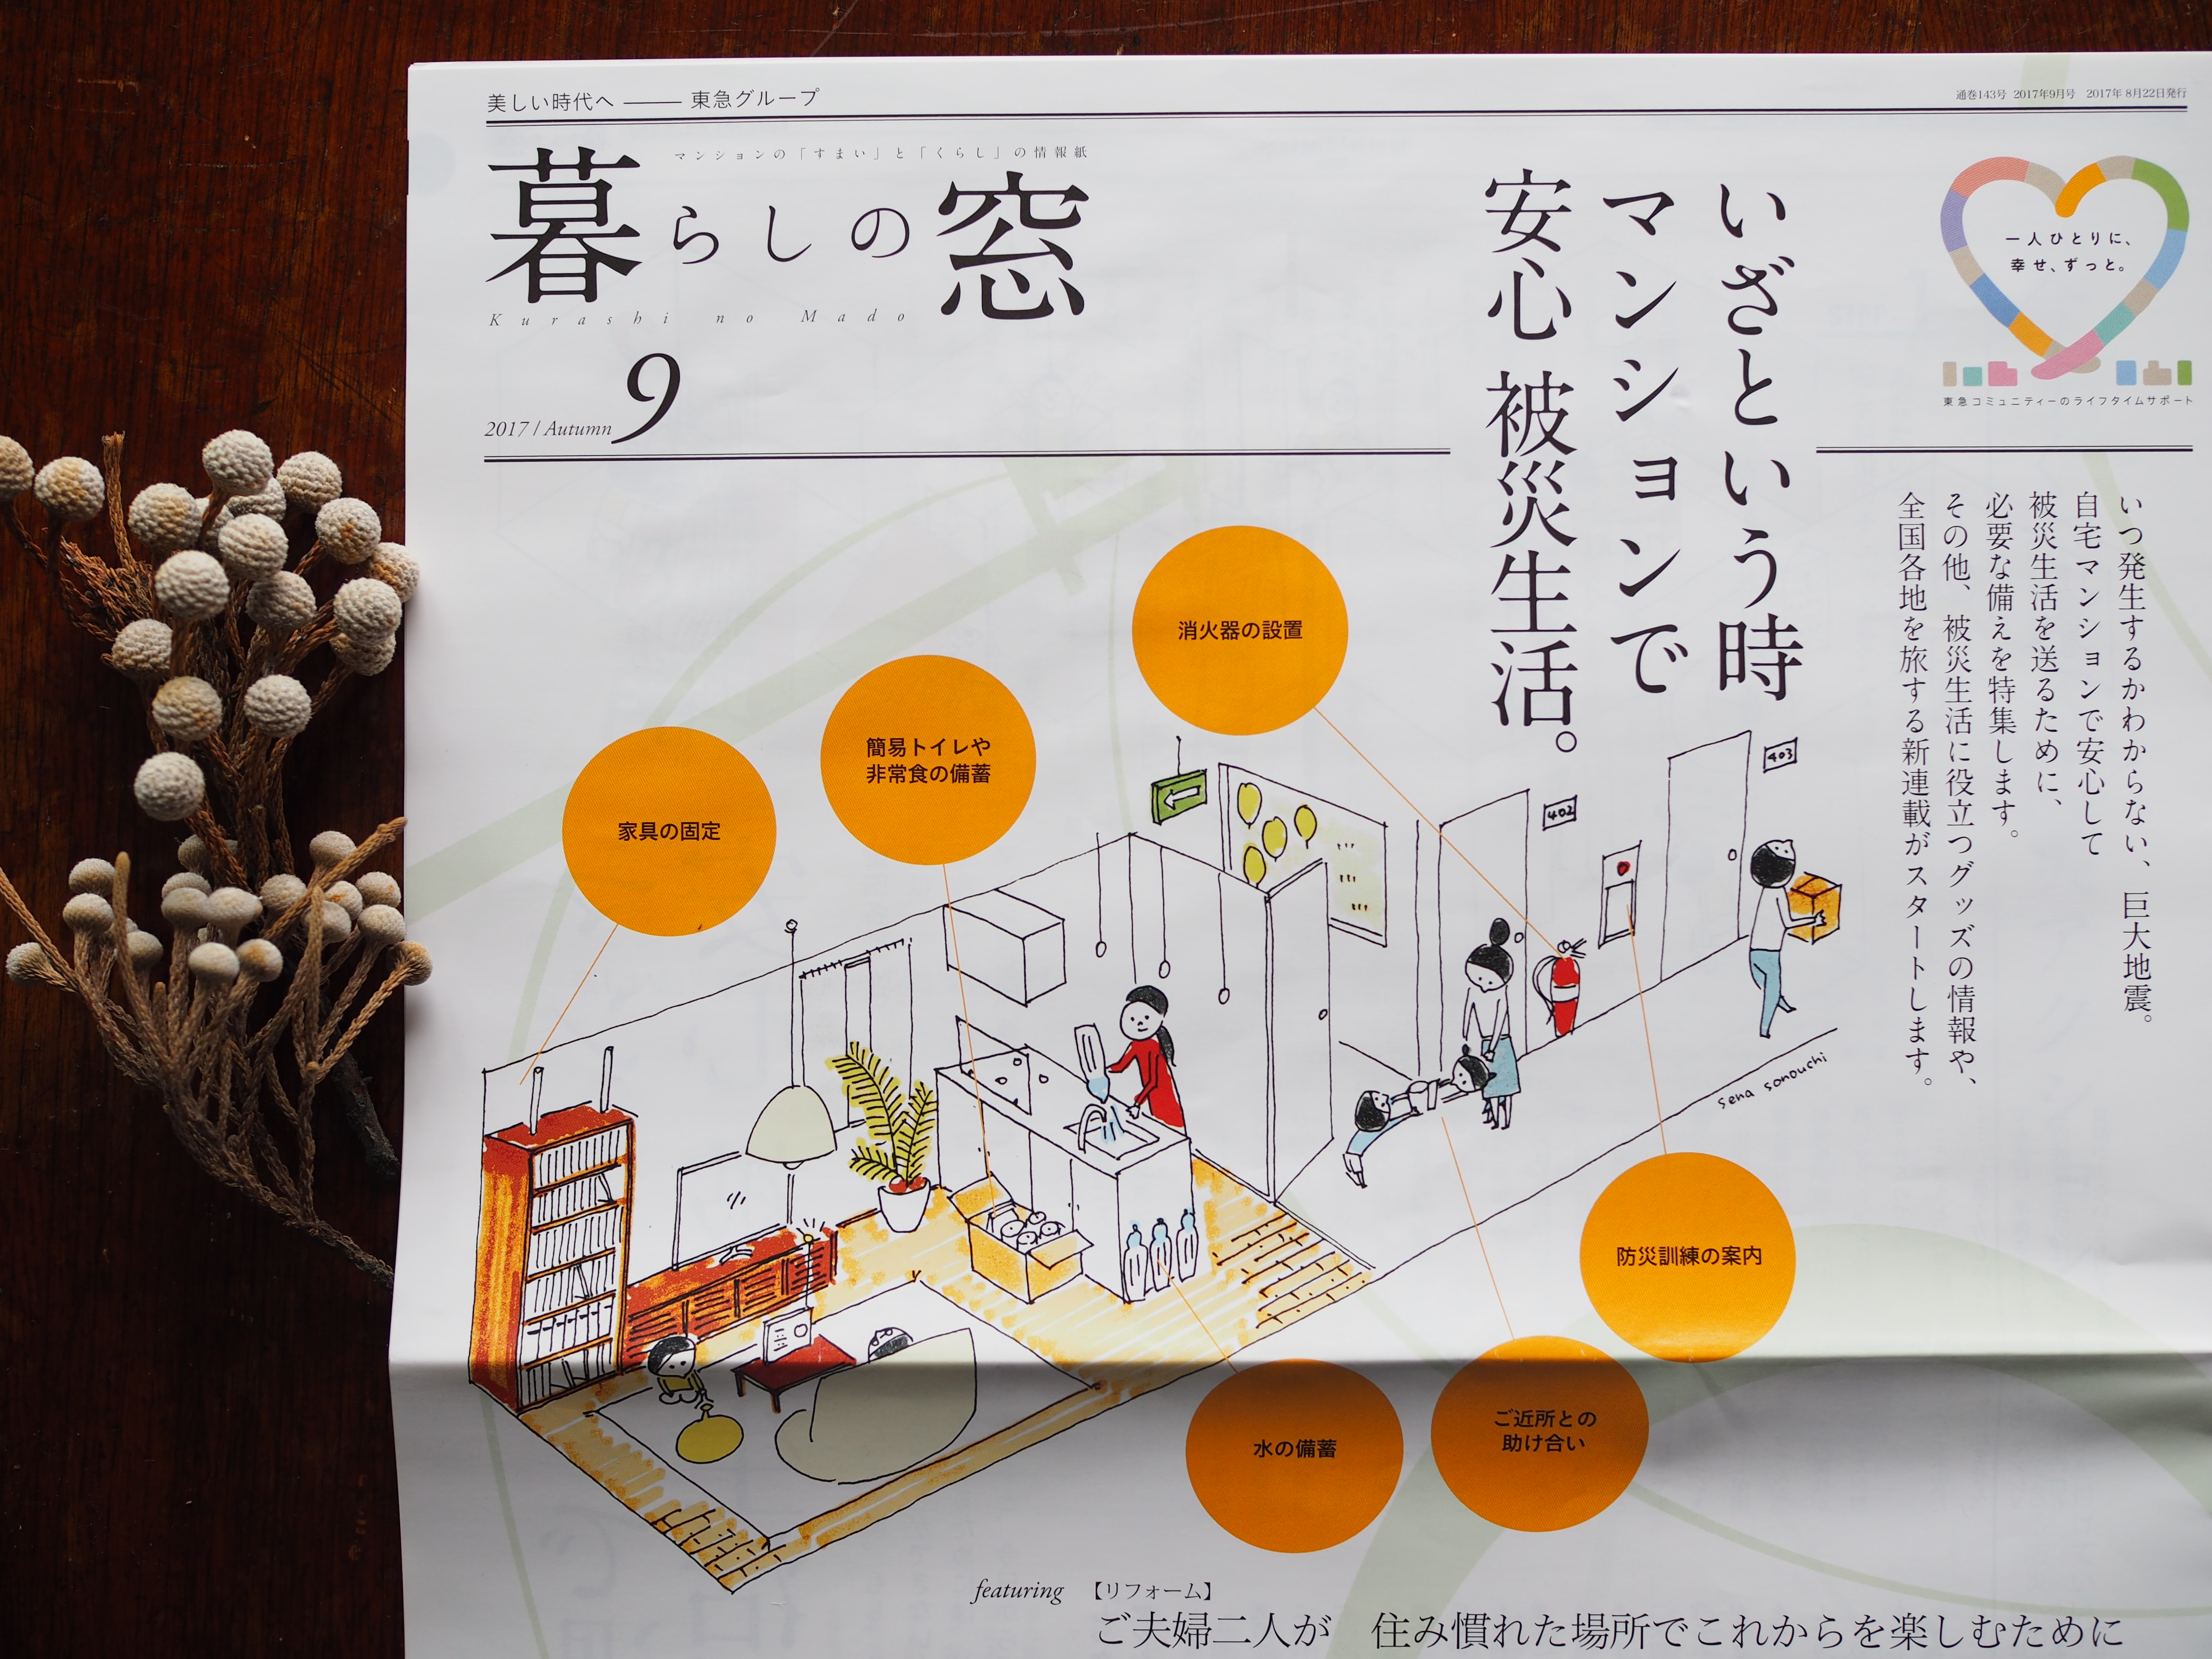 美しい時代へ ―― 東急グループ
通巻143号 2017年9月号 2017年 8月22日発行
マンションの「すまい」と「くらし」の情報紙
暮らしの窓
Kurashi no Mado
2017 / Autumn 9
いざという時
マンションで
安心 被災生活。
一人ひとりに、
幸せ、ずっと。
東急コミュニティーのライフタイムサポート
いつ発生するかわからない、巨大地震。
自宅マンションで安心して
被災生活を送るために、
必要な備えを特集します。
その他、被災生活に役立つグッズの情報や、
全国各地を旅する新連載がスタートします。
消火器の設置
簡易トイレや
非常食の備蓄
家具の固定
403
402
sena sonouchi
防災訓練の案内
ご近所との
助け合い
水の備蓄
featuring 【リフォーム】
ご夫婦二人が 住み慣れた場所でこれからを楽しむために